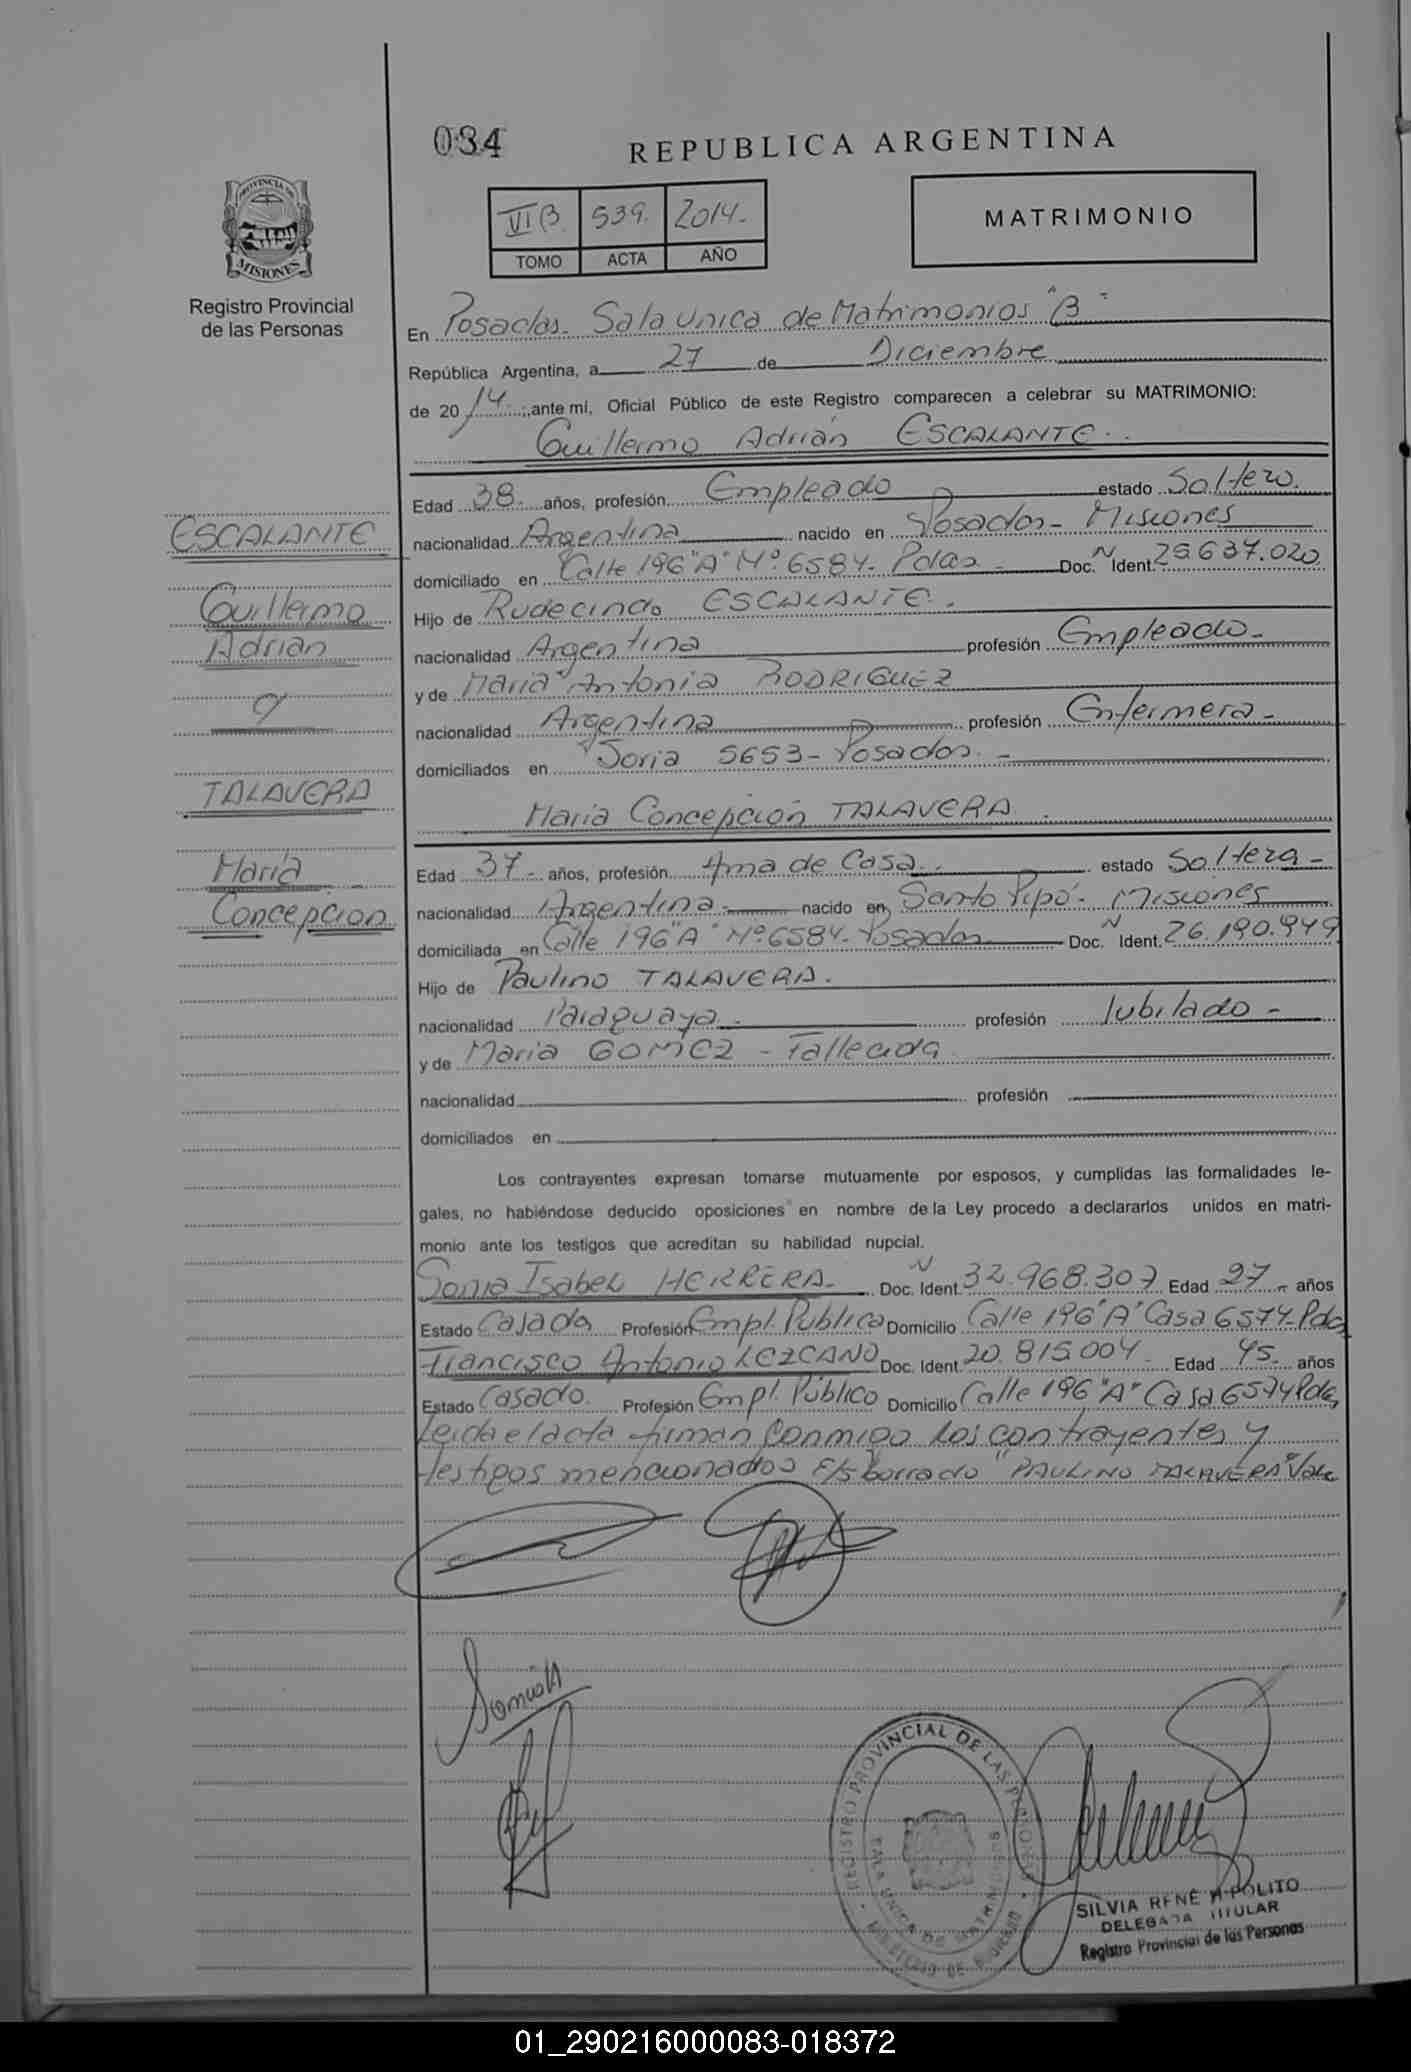 034
REPUBLICA ARGENTINA
PROVINCIA DE
MISIONES
Registro Provincial
de las Personas
VI B. 539. 2014.-
TOMO ACTA AÑO
MATRIMONIO
En Posadas- Sala Unica de Matrimonios "B"-
República Argentina, a 27 de Diciembre
de 20 14. , ante mí, Oficial Público de este Registro comparecen a celebrar su MATRIMONIO:
Guillermo Adrián ESCALANTE.
Edad 38. años, profesión Empleado estado Soltero.
nacionalidad Argentina nacido en Posadas- Misiones
domiciliado en Calle 196 "A" Nº 6584- Pdas - Doc. N Ident. 25.637.020
Hijo de Rudecindo ESCALANTE.
nacionalidad Argentina profesión Empleado-
y de Maria Antonia RODRIGUEZ
nacionalidad Argentina profesión Enfermera-
domiciliados en Soria 5653- Posadas.-
Maria Concepción TALAVERA.
Edad 37- años, profesión Ama de Casa.- estado Soltera-
nacionalidad Argentina- nacido en Santo Pipó- Misiones
domiciliada en Calle 196 "A" Nº 6584- Posadas Doc. N Ident. 26.190.949
Hijo de Paulino TALAVERA.
nacionalidad Paraguaya.- profesión Jubilado-
y de Maria GOMEZ - Fallecida
nacionalidad profesión
domiciliados en
Los contrayentes expresan tomarse mutuamente por esposos, y cumplidas las formalidades le-
gales, no habiéndose deducido oposiciones en nombre de la Ley procedo a declararlos unidos en matri-
monio ante los testigos que acreditan su habilidad nupcial.
Sonia Isabel HERRERA- Doc. N Ident. 32.968.307 Edad 27- años
Estado Casada Profesión Empl. Publica Domicilio Calle 196 "A" Casa 6574-Pdas
Francisco Antonio LEZCANO Doc. Ident. 20.815.004- Edad 45- años
Estado Casado. Profesión Empl. Público Domicilio Calle 196 "A" Casa 6574 Pdas
Leida el acta firman conmigo los contrayentes y
testigos mencionados E/S borrado "PAULINO TALAVERA" Vale
ESCALANTE
Guillermo
Adrián
c/
TALAVERA
María
Concepción
REGISTRO PROVINCIAL DE LAS PERSONAS
SALA UNICA DE MATRIMONIOS
SILVIA RENÉ HIPOLITO
DELEGADA TITULAR
Registro Provincial de las Personas
01_290216000083-018372